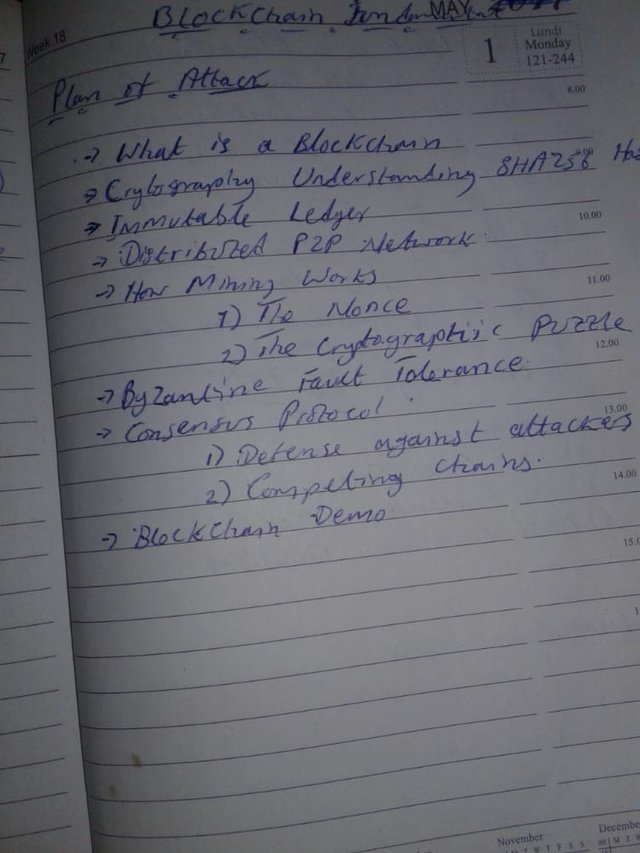 Blockchain MAY
Week 18
1 Lundi
Monday
121-244
Plan of Attack
8.00
→ What is a Blockchain
9.00
→ Crytography Understanding SHA256
→ Immutable Ledger
10.00
→ Distributed P2P Network
→ How Mining Works
11.00
1) The Nonce
2) The Cryptographic Puzzle
12.00
→ Byzantine Fault Tolerance.
→ Consensus Protocol.
13.00
1) Defense against attackers
2) Competing chains.
14.00
→ BlockChain Demo.
November
December